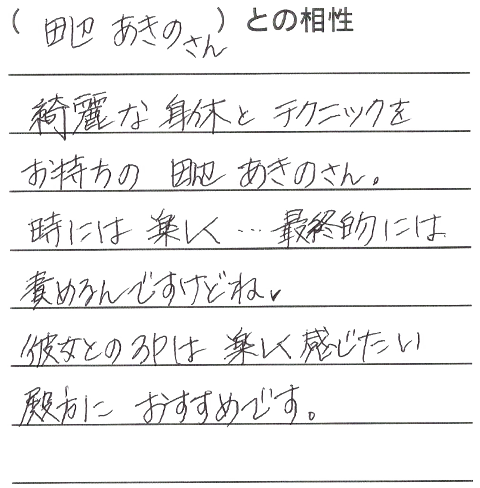 ( 田辺 あきのさん ) との相性
綺麗な身体と テクニックを
お持ちの 田辺 あきのさん。
時には 楽しく…最終的には
責めるんですけどね♥
彼女との3Pは 楽しく感じたい
殿方に おすすめです。